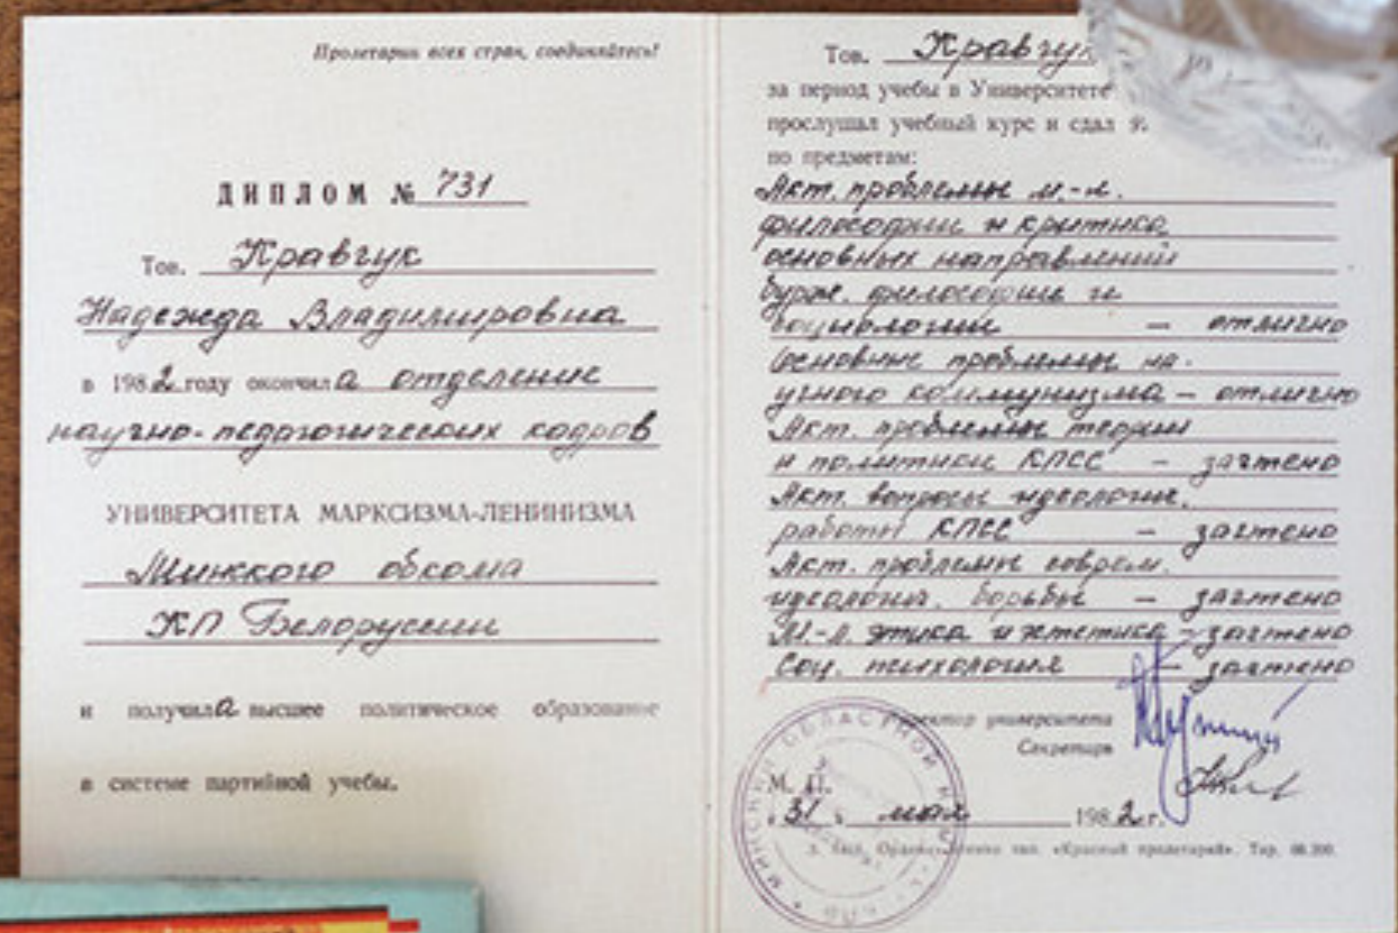 Пролетарии всех стран, соединяйтесь!
ДИПЛОМ № 731
Тов. Кравчук
Надежда Владимировна
в 1982 году окончила отделение
научно-педагогических кадров
УНИВЕРСИТЕТА МАРКСИЗМА-ЛЕНИНИЗМА
Минского обкома
КП Белоруссии
и получила высшее политическое образование
в системе партийной учебы.
Тов. Кравчук
за период учебы в Университете
прослушал учебный курс и сдал
по предметам:
Акт. проблемы м.-л.
философии и критика
основных направлений
бурж. философии и
социологии — отлично
Основные проблемы на-
учного коммунизма — отлично
Акт. проблемы теории
и политики КПСС — зачтено
Акт. вопросы идеологич.
работы КПСС — зачтено
Акт. проблемы соврем.
идеологич. борьбы — зачтено
М.-Л. этика и эстетика — зачтено
Соц. психология — зачтено
Директор университета
Секретарь
М. П.
31 мая 1982 г.
тип. «Красный пролетарий». Тир.
МИНСКИЙ ОБЛАСТНОЙ